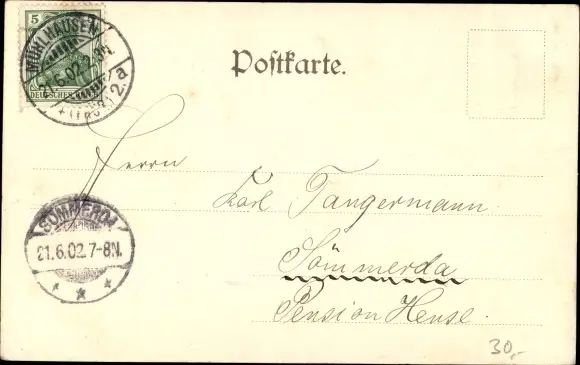 5
DEUTSCHES
MÜHLHAUSEN
21.6.02.2-3N.
2.a
Postkarte.
Herrn
Karl Tangermann
Sömmerda
Pension Hensel.
SÖMMERDA
21.6.02.7-8N.
* * *
30,-